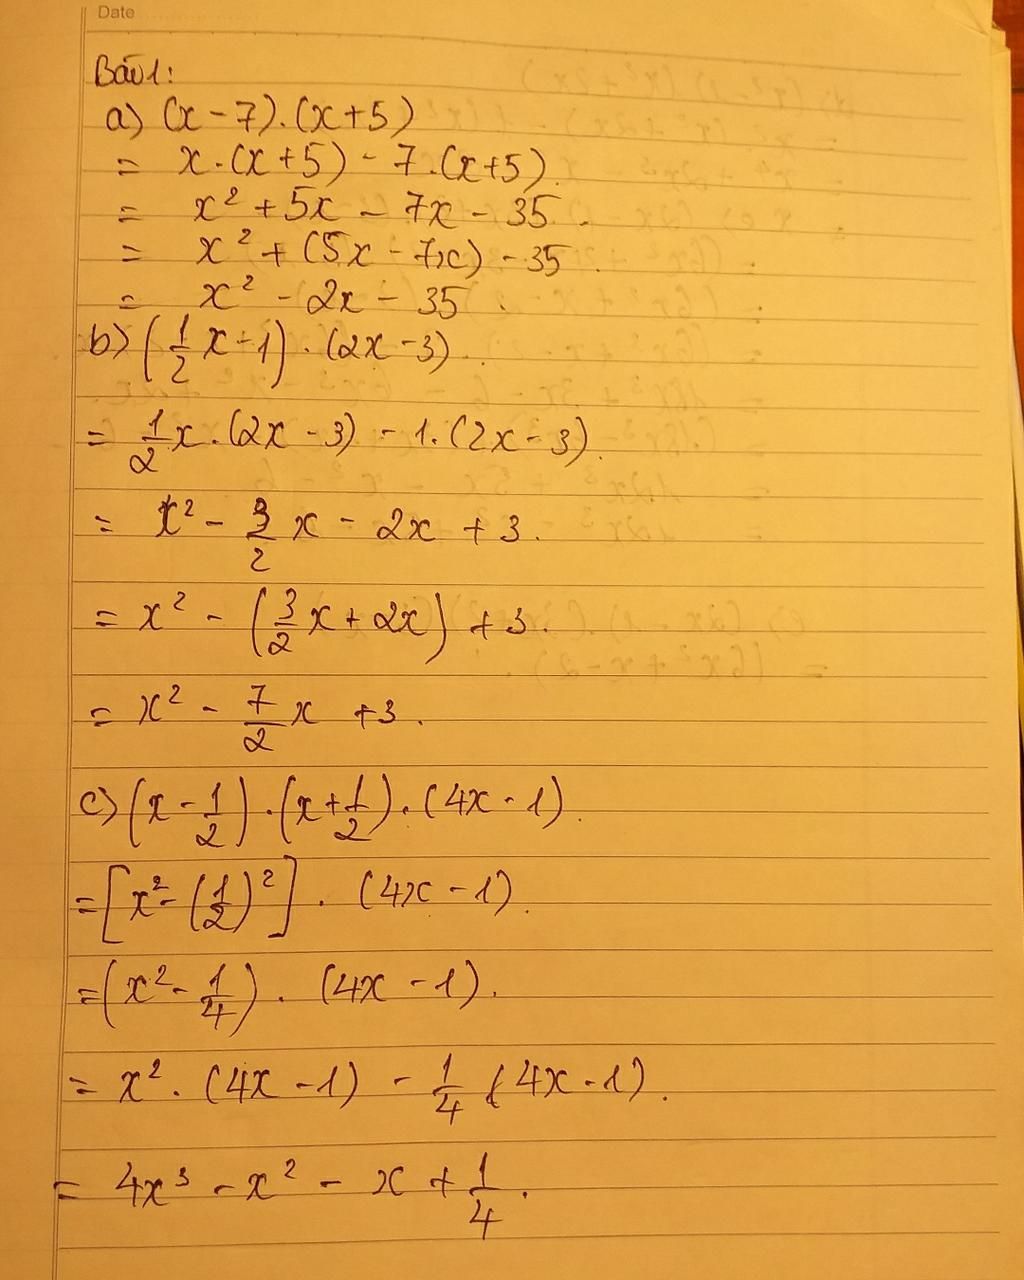 Date
Bài 1:
a) (x - 7).(x + 5)
= x.(x + 5) - 7.(x + 5).
= x² + 5x - 7x - 35.
= x² + (5x - 7x) - 35.
= x² - 2x - 35.
b) (1/2 x - 1).(2x - 3).
= 1/2 x.(2x - 3) - 1.(2x - 3).
= x² - 3/2 x - 2x + 3.
= x² - (3/2 x + 2x) + 3.
= x² - 7/2 x + 3.
c) (x - 1/2).(x + 1/2).(4x - 1).
= [x² - (1/2)²].(4x - 1).
= (x² - 1/4).(4x - 1).
= x².(4x - 1) - 1/4 (4x - 1).
= 4x³ - x² - x + 1/4.